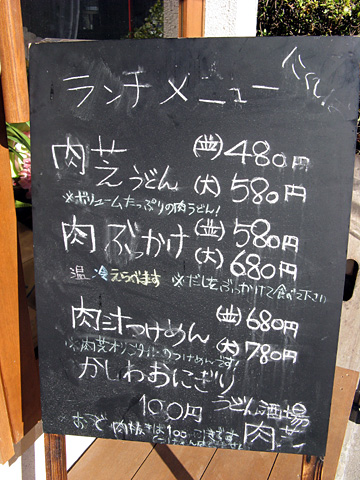 ランチメニュー
肉芝うどん (並)480円
(大)580円
※ボリュームたっぷりの肉うどん!
肉ぶっかけ (並)580円
(大)680円
温・冷えらべます ※だしをぶっかけて食べて下さい
肉汁つけめん (並)680円
(大)780円
※肉芝オリジナルのつけめんです!
かしわおにぎり
100円
うどん酒場
肉芝
肉抜きは100